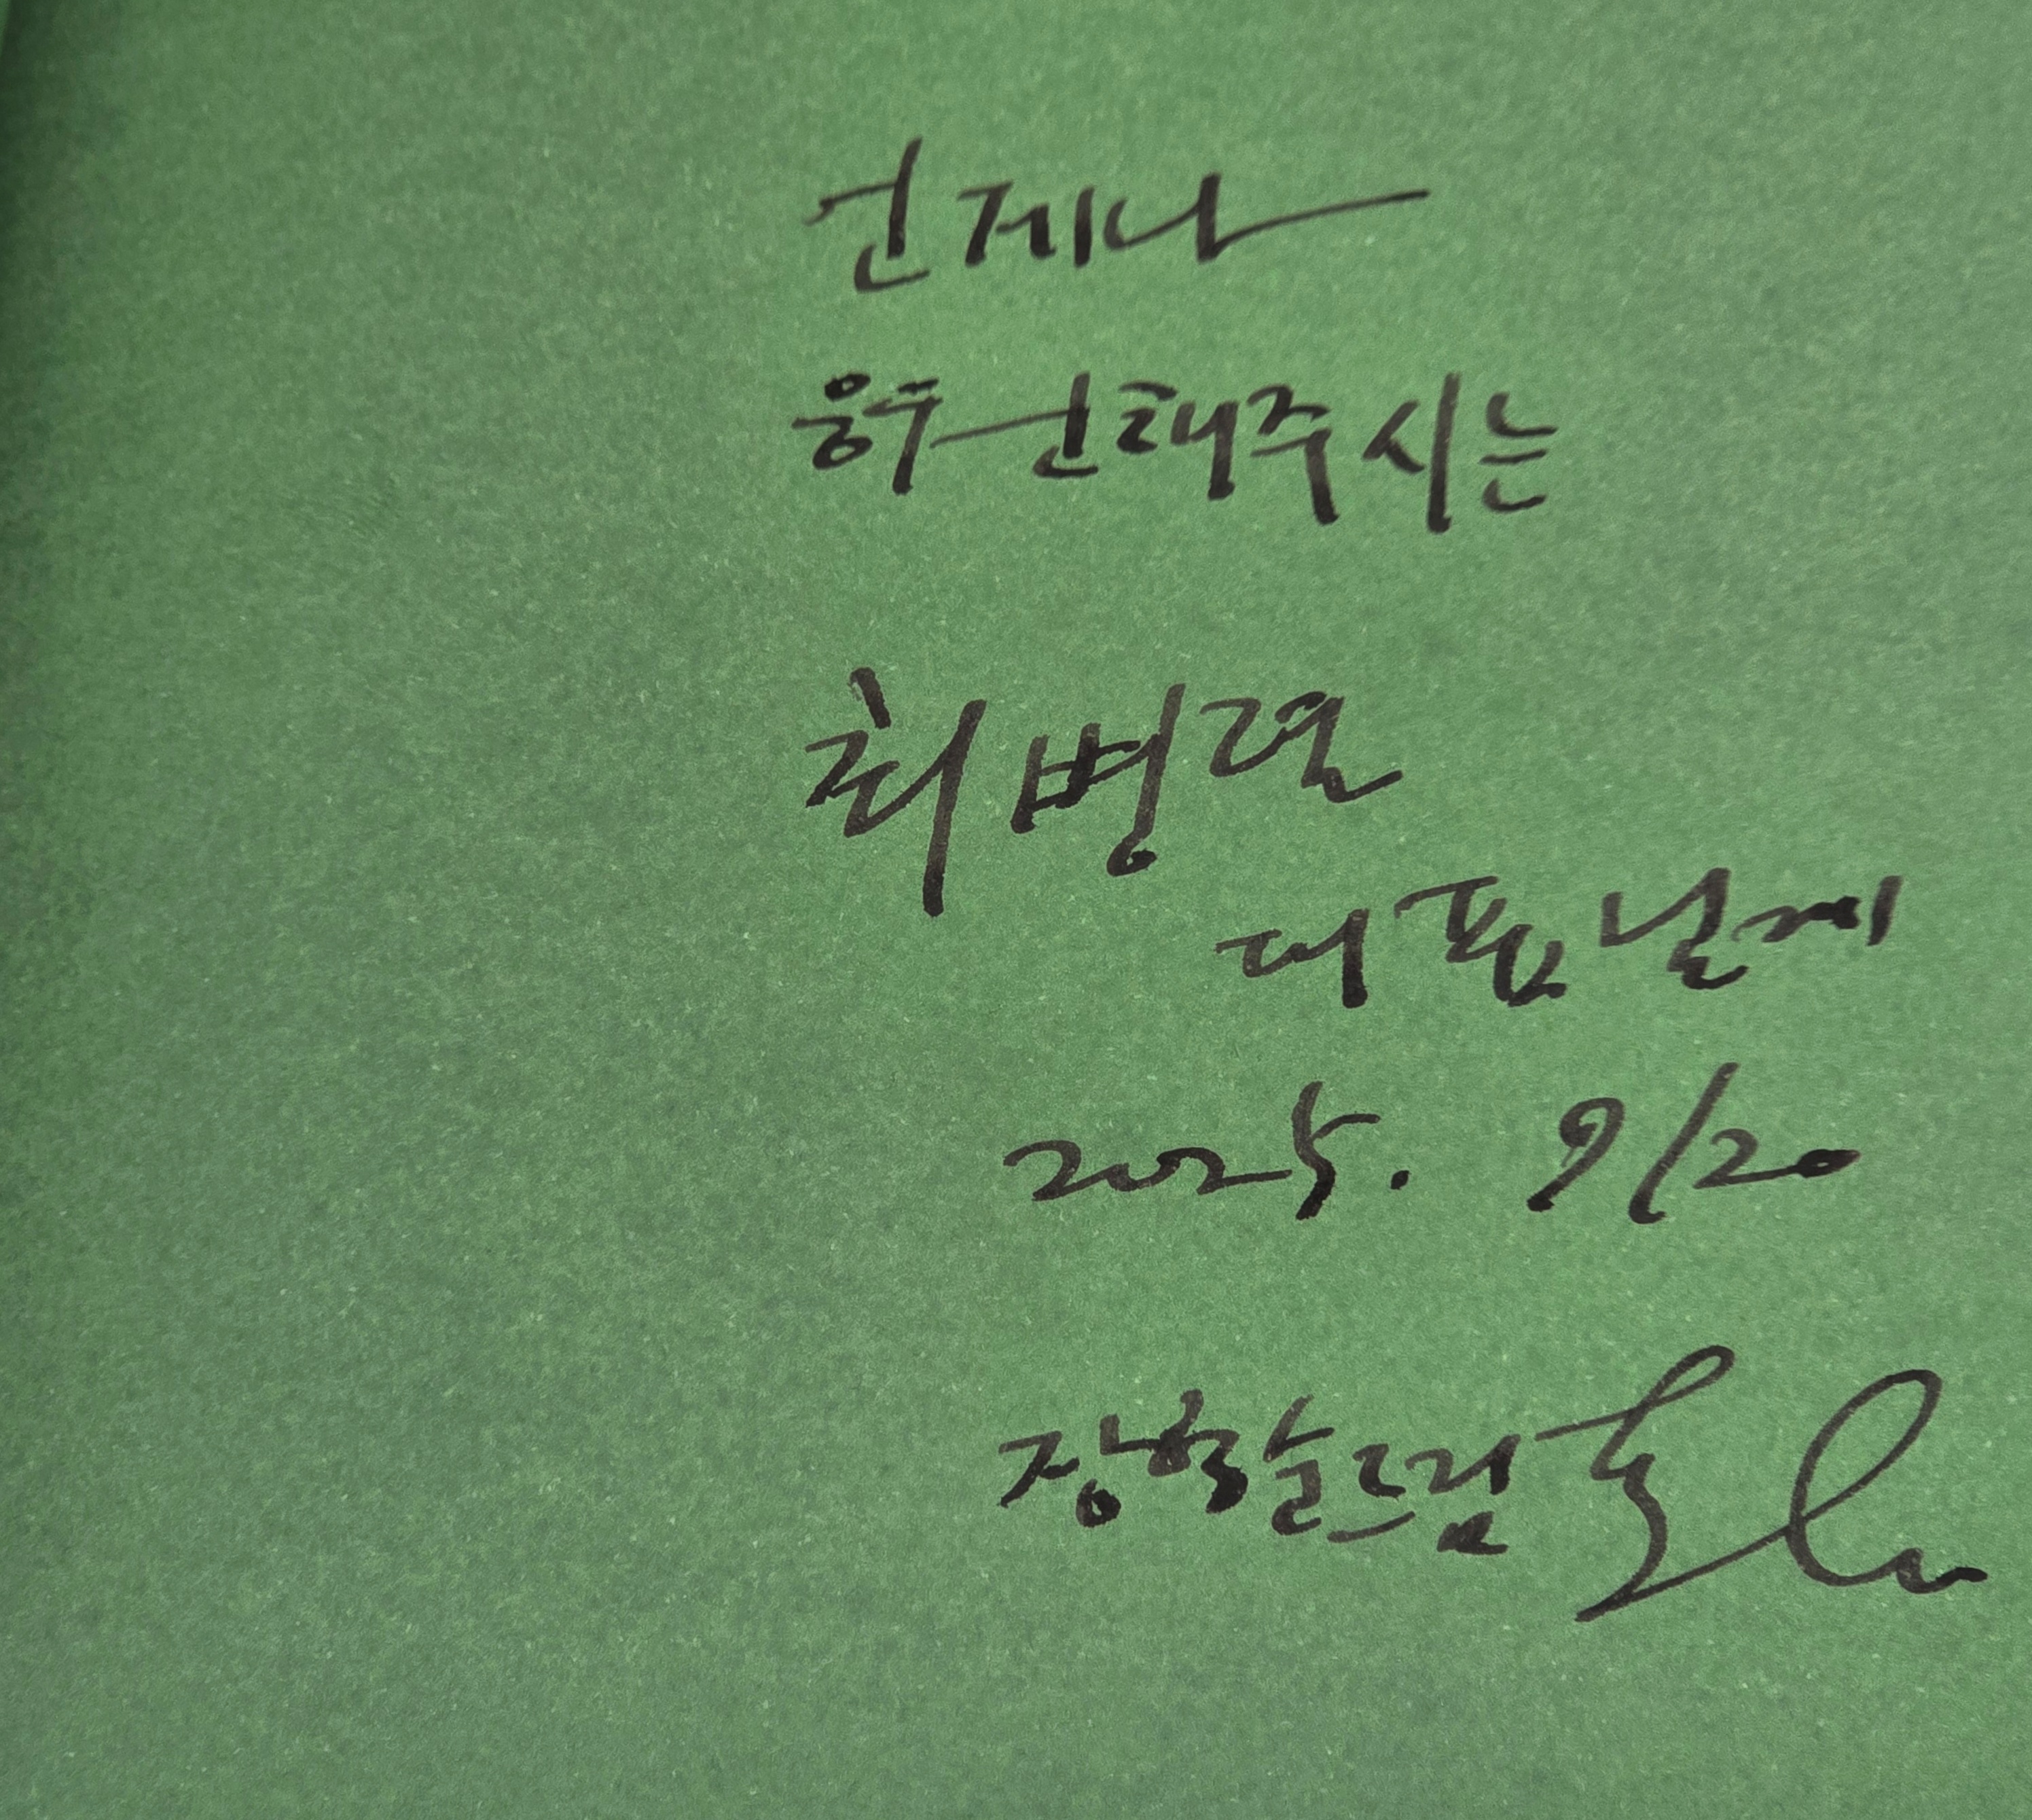 언제나
응원해주시는
최병렬
대표님께
2025. 9/20
장학순드림